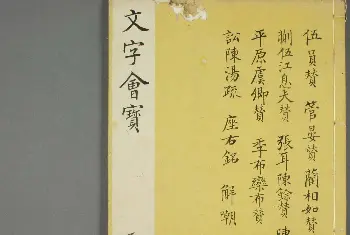 伍員贊 管晏贊 藺相如贊
蒯伍江息夫贊 張耳陳餘贊 陳
平原虞卿贊 季布欒布贊
訟陳湯疏 座右銘 解嘲
文字會寶